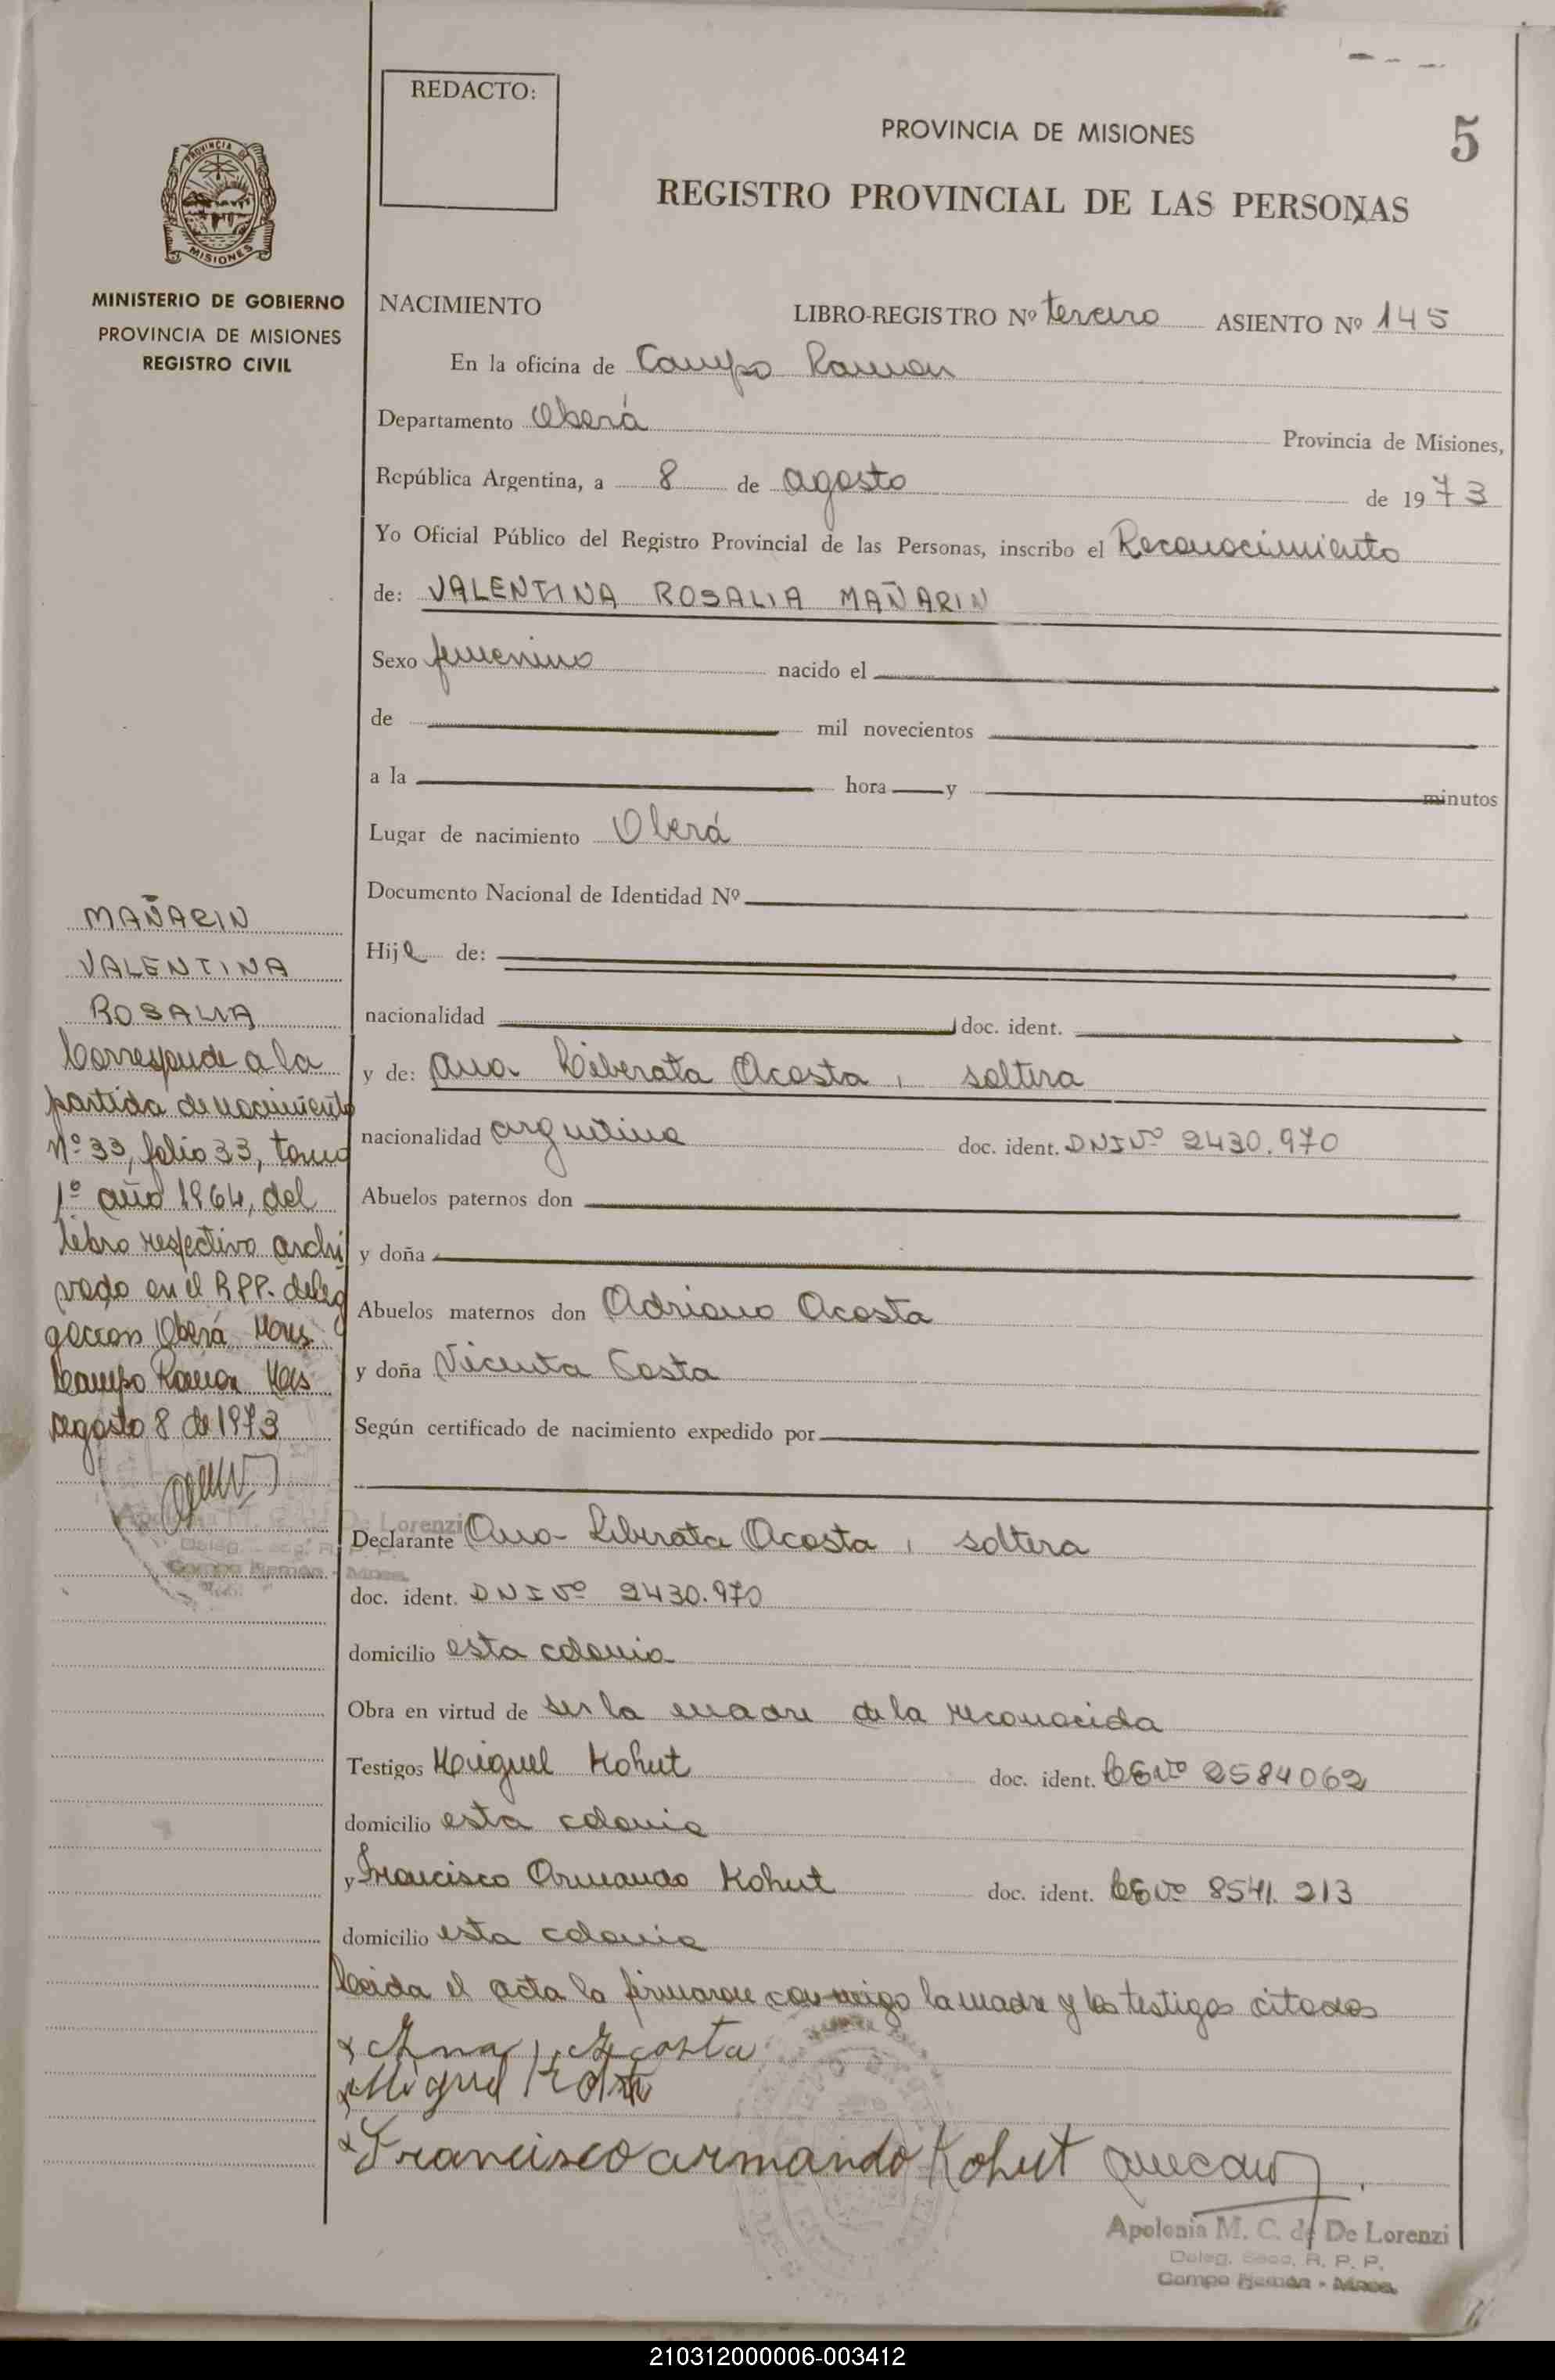 REDACTO:
PROVINCIA DE MISIONES
5
REGISTRO PROVINCIAL DE LAS PERSONAS
PROVINCIA DE
MISIONES
MINISTERIO DE GOBIERNO
PROVINCIA DE MISIONES
REGISTRO CIVIL
NACIMIENTO LIBRO-REGISTRO Nº tercero ASIENTO Nº 145
En la oficina de Campo Ramon
Departamento Oberá Provincia de Misiones,
República Argentina, a 8 de agosto de 1973
Yo Oficial Público del Registro Provincial de las Personas, inscribo el Reconocimiento
de: VALENTINA ROSALIA MAÑARIN
Sexo femenino nacido el
de mil novecientos
a la hora y minutos
Lugar de nacimiento Oberá
Documento Nacional de Identidad Nº
Hija de:
nacionalidad doc. ident.
y de: Ana Liberata Acosta, soltera
nacionalidad argentina doc. ident. DNI Nº 2430.970
Abuelos paternos don
y doña
Abuelos maternos don Adriano Acosta
y doña Vicenta Costa
Según certificado de nacimiento expedido por
Declarante Ana Liberata Acosta, soltera
doc. ident. DNI Nº 2430.970
domicilio esta colonia
Obra en virtud de ser la madre de la reconocida
Testigos Miguel Kohut doc. ident. CE Nº 2584062
domicilio esta colonia
y Francisco Armando Kohut doc. ident. CE Nº 8541.213
domicilio esta colonia
Leida el acta la firmaron conmigo la madre y los testigos citados
Ana L. Acosta
Miguel Kohut
Francisco armando Kohut
Apolonia M. C. de De Lorenzi
Deleg. Secc. R. P. P.
Campo Ramón - Mnes.
MAÑARIN
VALENTINA
ROSALIA
Corresponde a la
partida de nacimiento
Nº 33, folio 33, tomo
1º año 1964, del
libro respectivo archi
vado en el R.P.P. deleg
gacion Oberá, Mnes.
Campo Ramon Mns
agosto 8 de 1973
Apolonia M. C. de De Lorenzi
Deleg. Secc. R. P. P.
Campo Ramón - Mnes.
210312000006-003412